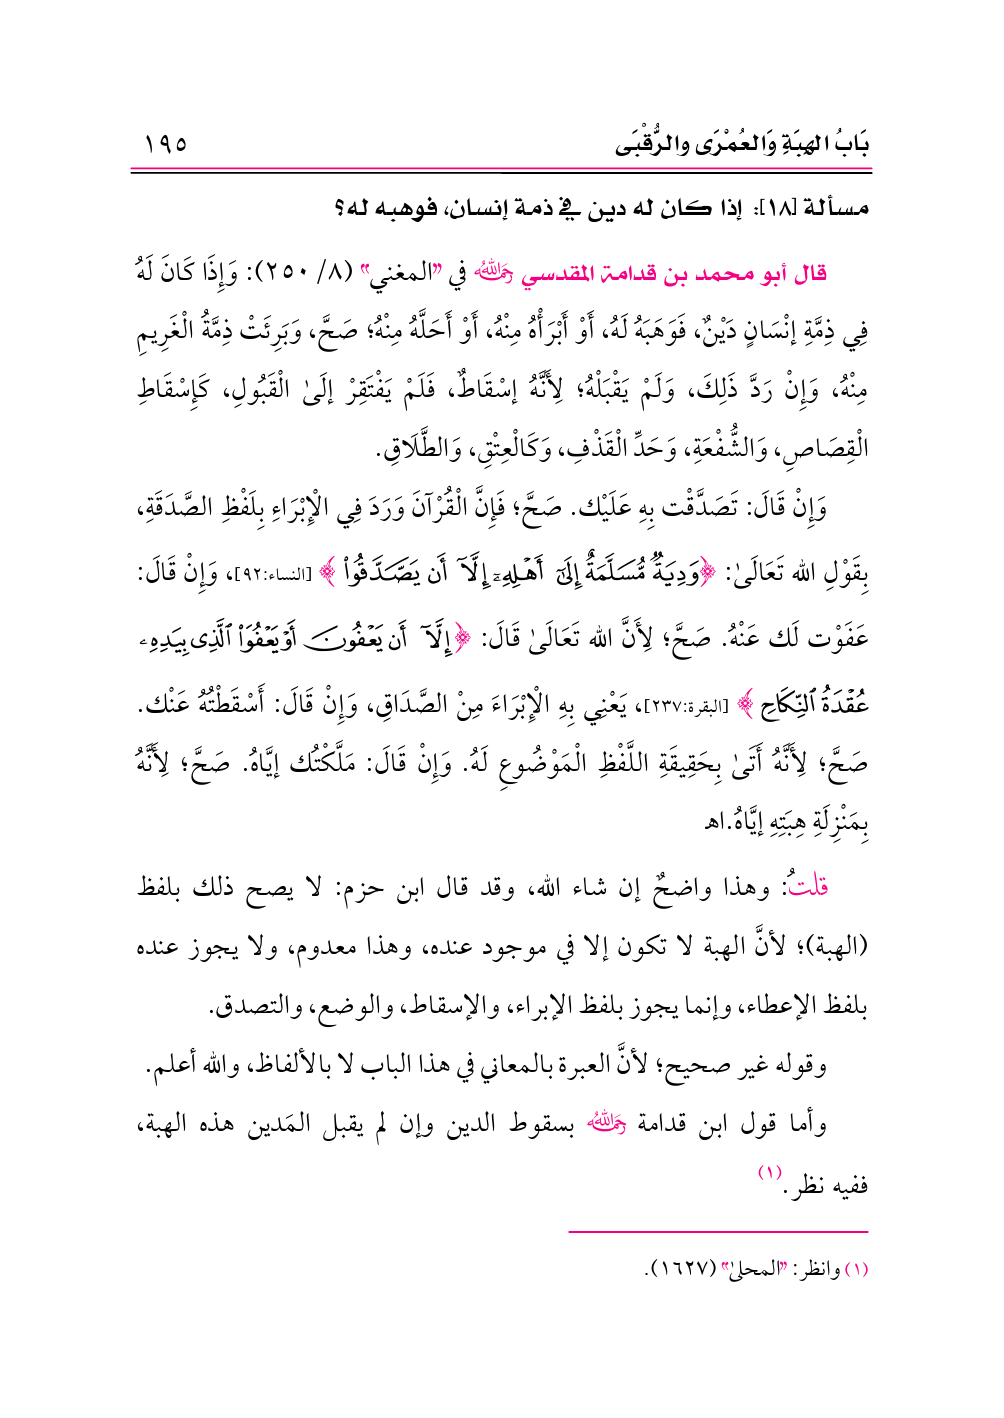 بَابُ الهِبَةِ وَالعُمْرَى والرُّقْبَى ١٩٥
مسألة [١٨]: إذا كان له دين في ذمة إنسان، فوهبه له؟
قال أبو محمد بن قدامة المقدسي رحمه الله في "المغني" (٨/ ٢٥٠): وَإِذَا كَانَ لَهُ
فِي ذِمَّةِ إنْسَانٍ دَيْنٌ، فَوَهَبَهُ لَهُ، أَوْ أَبْرَأَهُ مِنْهُ، أَوْ أَحَلَّهُ مِنْهُ؛ صَحَّ، وَبَرِئَتْ ذِمَّةُ الْغَرِيمِ
مِنْهُ، وَإِنْ رَدَّ ذَلِكَ، وَلَمْ يَقْبَلْهُ؛ لِأَنَّهُ إسْقَاطٌ، فَلَمْ يَفْتَقِرْ إلَىٰ الْقَبُولِ، كَإِسْقَاطِ
الْقِصَاصِ، وَالشُّفْعَةِ، وَحَدِّ الْقَذْفِ، وَكَالْعِتْقِ، وَالطَّلَاقِ.
وَإِنْ قَالَ: تَصَدَّقْت بِهِ عَلَيْك. صَحَّ؛ فَإِنَّ الْقُرْآنَ وَرَدَ فِي الْإِبْرَاءِ بِلَفْظِ الصَّدَقَةِ،
بِقَوْلِ الله تَعَالَىٰ: ﴿وَدِيَةٌ مُّسَلَّمَةٌ إِلَىٰٓ أَهْلِهِۦٓ إِلَّآ أَن يَصَّدَّقُوا۟﴾ [النساء:٩٢]، وَإِنْ قَالَ:
عَفَوْت لَك عَنْهُ. صَحَّ؛ لِأَنَّ الله تَعَالَىٰ قَالَ: ﴿إِلَّآ أَن يَعْفُونَ أَوْ يَعْفُوَا۟ ٱلَّذِى بِيَدِهِۦ
عُقْدَةُ ٱلنِّكَاحِ﴾ [البقرة:٢٣٧]، يَعْنِي بِهِ الْإِبْرَاءَ مِنْ الصَّدَاقِ، وَإِنْ قَالَ: أَسْقَطْتُهُ عَنْك.
صَحَّ؛ لِأَنَّهُ أَتَىٰ بِحَقِيقَةِ اللَّفْظِ الْمَوْضُوعِ لَهُ. وَإِنْ قَالَ: مَلَّكْتُك إيَّاهُ. صَحَّ؛ لِأَنَّهُ
بِمَنْزِلَةِ هِبَتِهِ إيَّاهُ.اهـ
قلتُ: وهذا واضحٌ إن شاء الله، وقد قال ابن حزم: لا يصح ذلك بلفظ
(الهبة)؛ لأنَّ الهبة لا تكون إلا في موجود عنده، وهذا معدوم، ولا يجوز عنده
بلفظ الإعطاء، وإنما يجوز بلفظ الإبراء، والإسقاط، والوضع، والتصدق.
وقوله غير صحيح؛ لأنَّ العبرة بالمعاني في هذا الباب لا بالألفاظ، والله أعلم.
وأما قول ابن قدامة رحمه الله بسقوط الدين وإن لم يقبل المَدين هذه الهبة،
ففيه نظر.(١)
(١) وانظر: "المحلىٰ" (١٦٢٧).